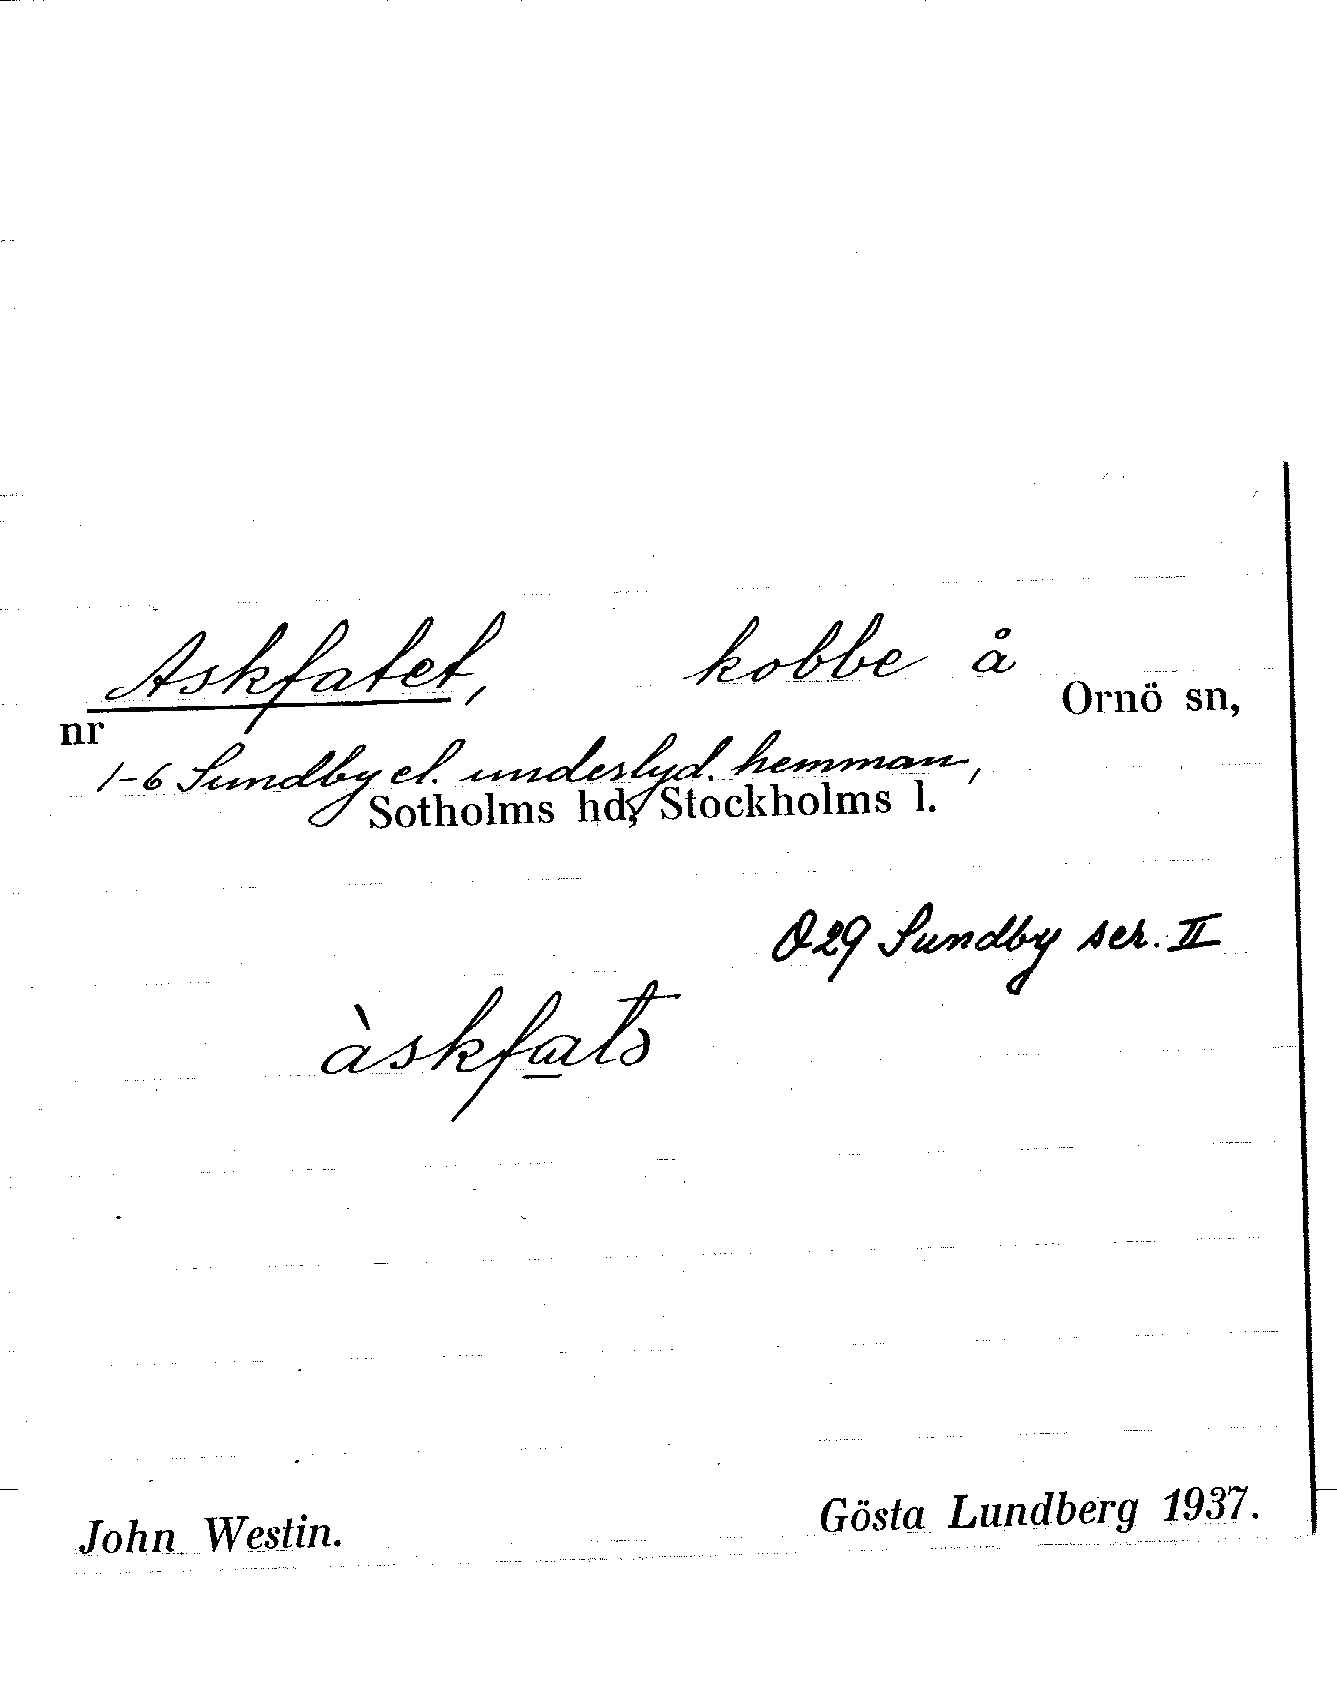 Askfatet, kobbe å Ornö sn,
nr
1-6 Sundby el. underlyd. hemman,
Sotholms hd, Stockholms l.
O29 Sundby ser. II
àskfa̲tə
John Westin. Gösta Lundberg 1937.